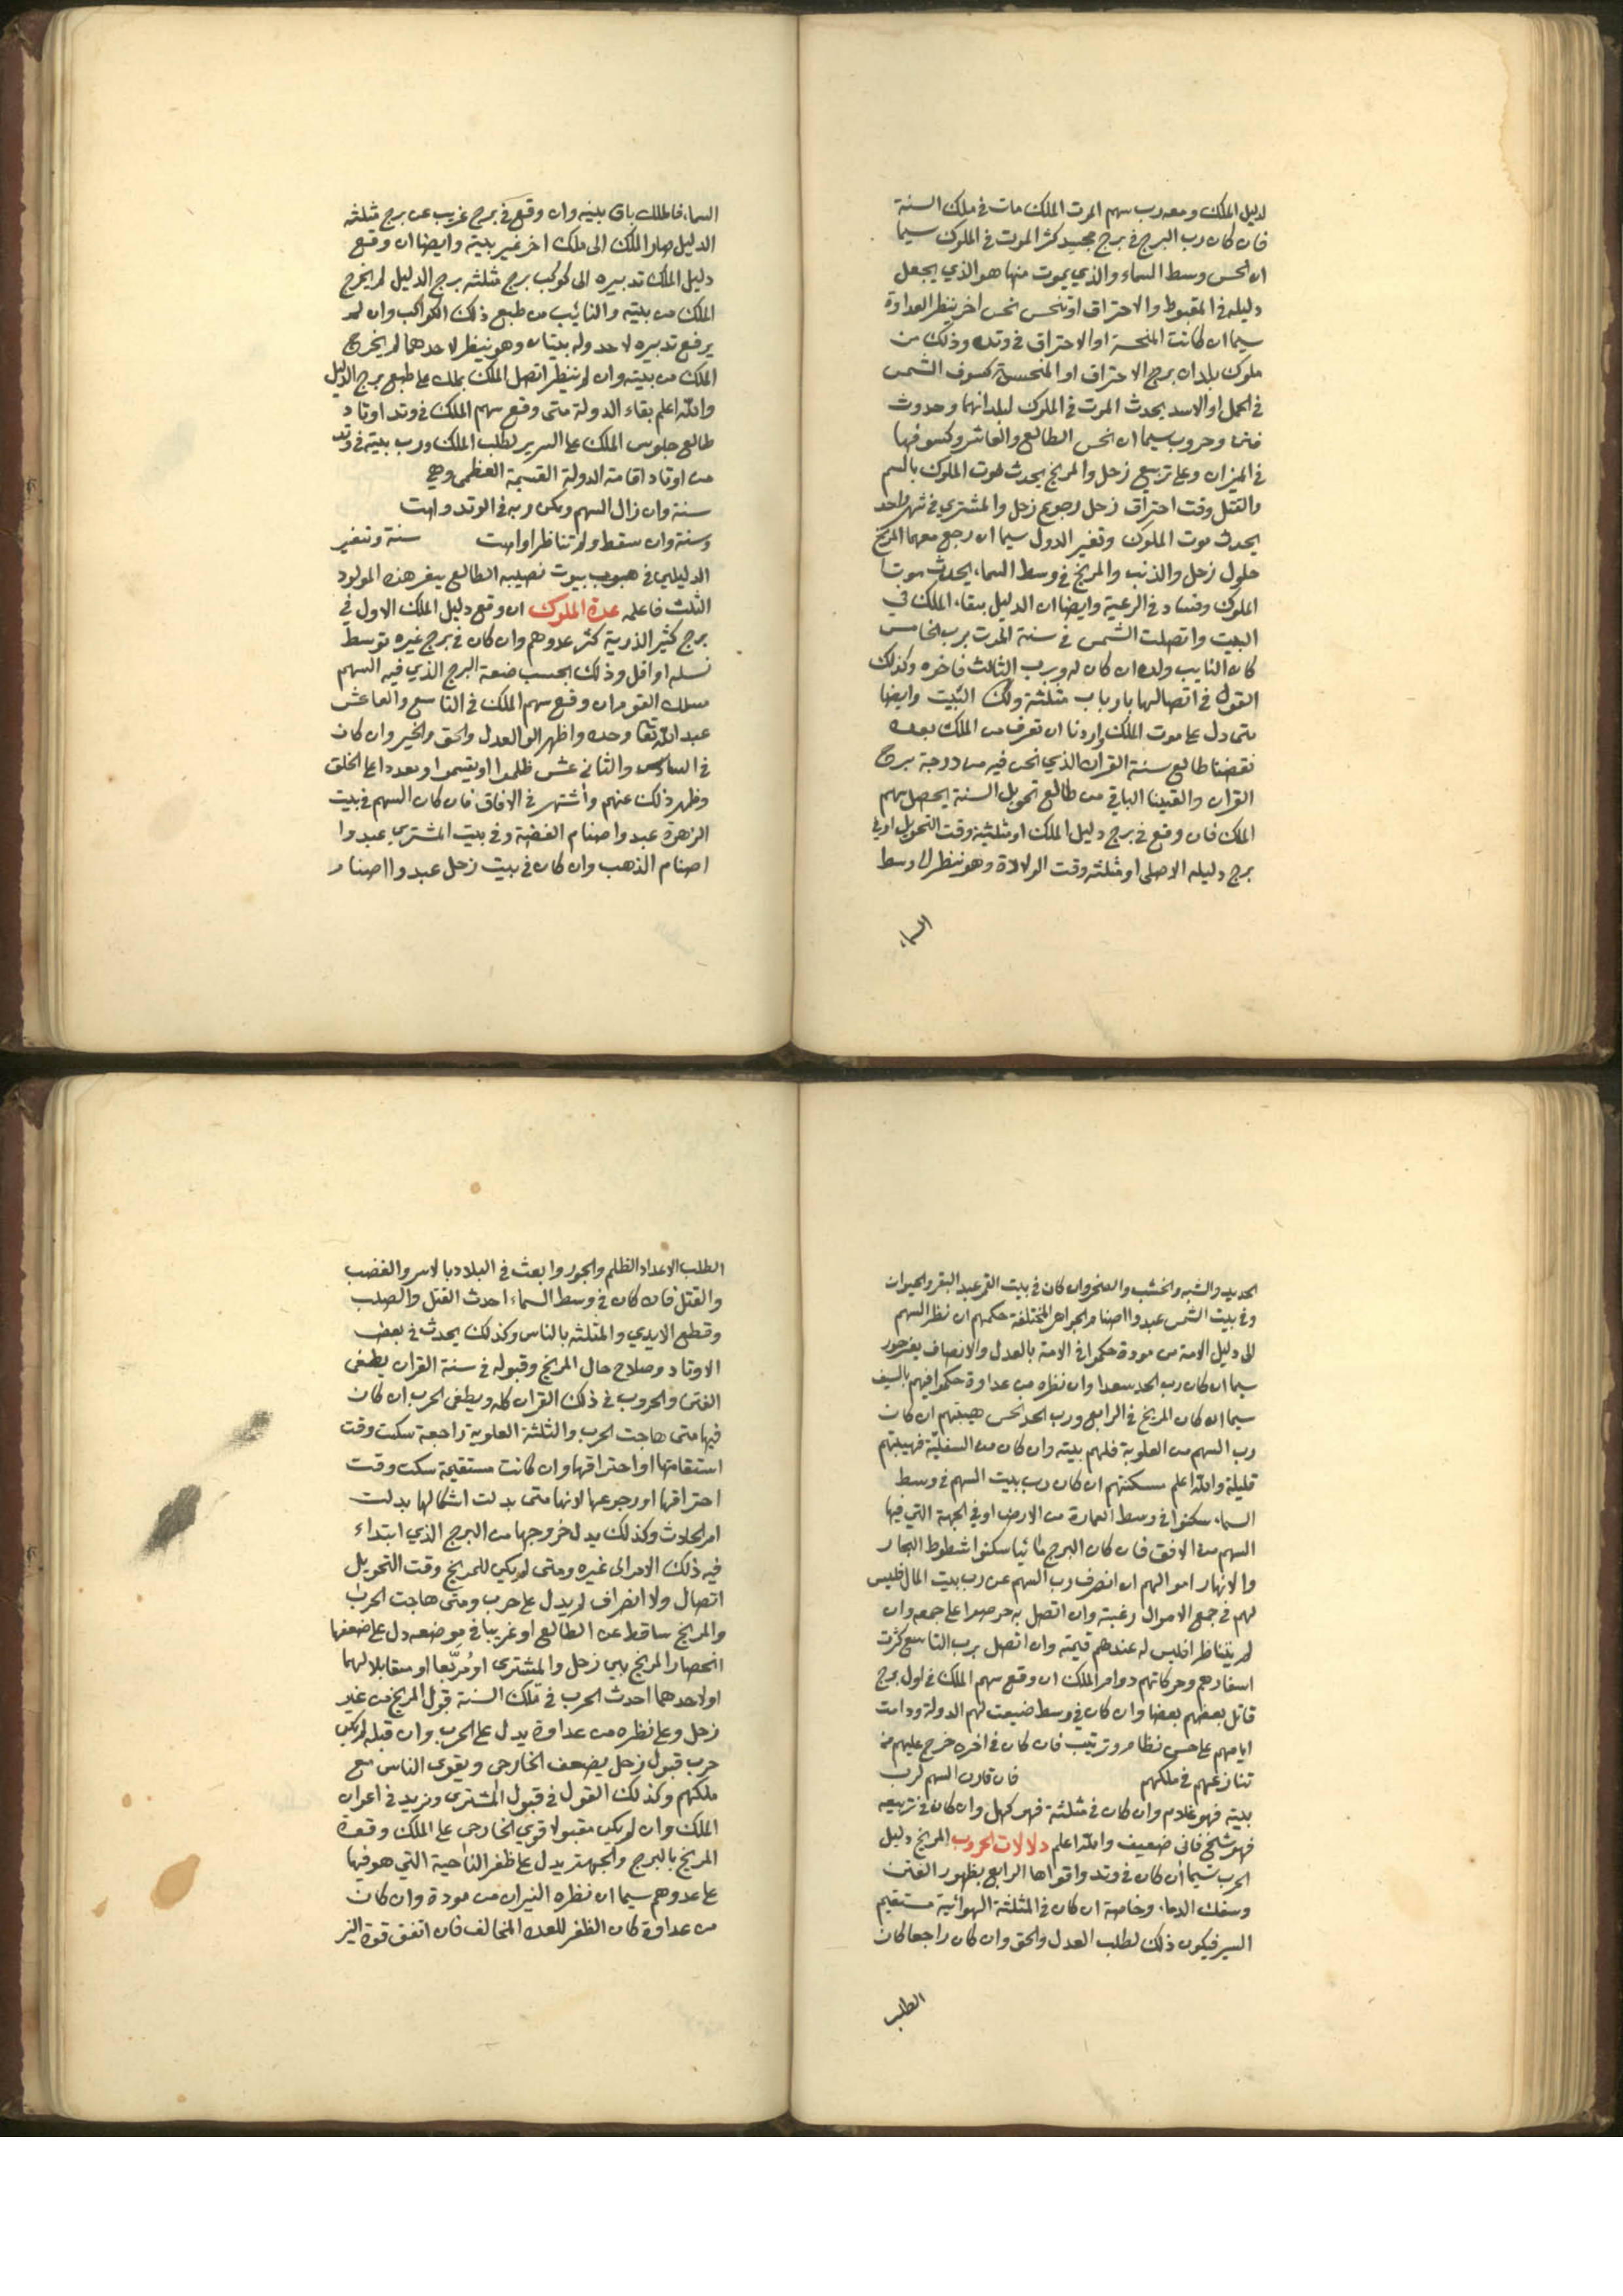 لدليل الملك ومعه رب سهم الموت الملك مات في ملك السنة
فان كان رب البرج في برج مجسد كثر الموت في الملوك سيما
ان نحس وسط السماء والذي يموت منها هو الذي يجعل
دليله في الهبوط والاحتراق او ينحس نحس اخر ينظر العداوة
سيما ان كانت المنحسة او الاحتراق في وتد وذلك من
ملوك بلدان برج الاحتراق او المنحسة كسوف الشمس
في الحمل او الاسد يحدث الموت في الملوك لبلدانهما وحدوث
فتن وحروب سيما ان نحس الطالع والعاشر وكسوفها
في الميزان وعلى تربيع زحل والمريخ يحدث موت الملوك بالسم
والقتل وقت احتراق زحل رجوع زحل والمشتري في شهر واحد
يحدث موت الملوك وتغير الدول سيما ان رجع معهما المريخ
حلول زحل والذنب والمريخ في وسط السماء يحدث موت
الملوك وفساد في الرعية وايضا ان الدليل ببقاء الملك في
البيت واتصلت الشمس في سنة الموت برب الخامس
كان النايب ولده ان كان له وبرب الثالث فاخوه وكذلك
القول في اتصالها بارباب مثلثة ولك البيت وايضا
متى دل على موت الملك واردنا ان نعرف من الملك بعده
نقصنا طالع سنة القران الذي نحن فيه من درجة برج
القران والقينا الباقي من طالع تحويل السنة يحصل سهم
الملك فان وقع في برج دليل الملك او مثلثته وقت التحويل او في
برج دليله الاصلى او مثلثته وقت الولادة وهو ينظر الى وسط
السماء
السماء فالملك باق بيته وان وقع في برج غريب عن برج مثلثه
الدليل صار الملك الى ملك اخر غير بيته وايضا ان وقع
دليل الملك تدبيره الى كوكب برج مثلثه برج الدليل لم يخرج
الملك من بيته والنائب من طبع ذلك الكواكب وان لم
يرفع تدبيره لاحد وله بيتان وهو ينظر لاحدهما لم يخرج
الملك من بيته وان لم ينظر اتصل الملك بملك على طبع برج الدليل
والله اعلم بقاء الدولة متى وقع سهم الملك في وتد اوتاد
طالع جلوس الملك على السرير لطلب الملك ورب بيته في وتد
من اوتاد اقامة الدولة القسيمة العظمى وهي
سنة وان زال السهم ويكن ربه في الوتد دامت
وسنة وان سقط ولم تناظر اوامت سنة وتتغير
الدليلين في هبوب بيوت نصيبه الطالع يبقر هذه المولود
الثلث فاعلمه عدة الملوك ان وقع دليل الملك الاول في
برج كثير الذرية كثر عدوهم وان كان في برج غيره توسط
نسله او اقل وذلك بحسب ضعة البرج الذي فيه السهم
مسلك القوم ان وقع سهم الملك في التاسع والعاشر
عبد الله تعا وحده واظهر الو العدل والحق والخير وان كان
في السادس والثاني عشر ظلموا او يقيموا وبعددا على الخلق
وظهر ذلك عنهم واشتهر في الافاق فان كان السهم في بيت
الزهرة عبدوا صنام الفضة وفي بيت المشتري عبدوا
اصنام الذهب وان كان في بيت زحل عبدوا اصنام
الحديد والشبه والخشب والصخر وان كان في بيت القمر عبد البقر والحيوان
وفي بيت الشمس عبدوا اصنام الجواهر المختلفة حكمهم ان نظر السهم
الى دليل الامة من مودة حكموا في الامة بالعدل والانصاف بغير جور
سيما ان كان رب الحد سعدا وان نظره من عداوة حكموا فيهم بالسيف
سيما ان كان المريخ في الرابع ورب الحد نحس هيبتهم ان كان
رب السهم من العلوية فلهم بيته وان كان من السفلية فهيبتهم
قليلة والله اعلم مسكنتهم ان كان رب بيت السهم في وسط
السماء سكنوا في وسط العمارة من الارض او في الجهة التي فيها
السهم من الافق فان كان البرج مائيا سكنوا شطوط البحار
والانهار اموالهم ان انصرف رب السهم عن رب بيت المال فليس
لهم في جمع الاموال رغبته وان اتصل به حرصوا على جمعه وان
لم يتناظرا فليس له عندهم قيمته وان اتصل برب التاسع كثرت
اسفارهم وحركاتهم دوام الملك ان وقع سهم الملك في اول برج
قاتل بعضهم بعضا وان كان في وسط ضيعت لهم الدولة ودامت
ايامهم على حسن نظام وترتيب فان كان في اخره خرج عليهم من
تنازعهم في ملكهم فان قارن السهم لرب
بيته فهو غلام وان كان في مثلثة فهو كهل وان كان في تربيعه
فهو شيخ فانى ضعيف والله اعلم دلالات الحروب المريخ دليل
الحرب سيما ان كان في وتد واقواها الرابع بظهور الفتن
وسفك الدماء وخاصة ان كان في المثلثة الهوائية مستقيم
السير فيكون ذلك لطلب العدل والحق وان كان راجعا كان
الطلب
الطلب الاعداد الظلم والجور وابعث في البلاد بالاسر والغضب
والقتل فان كان في وسط السماء احدث القتل والصلب
وقطع الايدي والمثلثه بالناس وكذلك يحدث في بعض
الاوتاد وصلاح حال المريخ وقبوله في سنة القران يطفى
الفتن والحروب في ذلك القران كله ويطفى الحرب ان كان
فيها متى هاجت الحرب والثلثة العلوية راجعة سكنت وقت
استقامتها او احتراقها وان كانت مستقيمة سكن وقت
احتراقها او رجوعها لانها متى بدلت اشكالها بدلت
امر الحادث وكذلك يدل خروجها من البرج الذي ابتداء
فيه ذلك الامر الى غيره ومتى لم يكن للمريخ وقت التحويل
اتصال ولا انصراف لم يدل على حرب ومتى هاجت الحرب
والمريخ ساقط عن الطالع او غريبا في موضعه دل على ضعفها
انحصار المريخ بين زحل والمشترى او مربعا او مقابلا لهما
او لاحدهما احدث الحرب في ملك السنة قبول المريخ من غير
زحل وعلى نظره من عداوة يدل على الحرب وان قبله لم يكن
حرب قبول زحل يضعف الخارجى ويقوى الناس مع
ملكهم وكذلك القول في قبول المشترى ويزيد في اعوان
الملك وان لم يكن مقبولا قوي الخارجى على الملك وقعدة
المريخ بالبرج والجهة يدل على ظفر الناحية التي هو فيها
على عدوهم سيما ان نظره النيران من مودة وان كان
من عداوة كان الظفر للعدو المخالف فان اتفق قوة النير